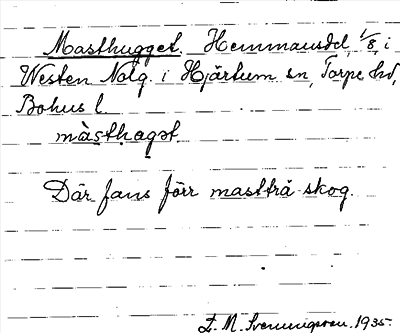 Masthugget. Hemmansdel, 1/8, i
Westen Nolg. i Hjärtum sn, Torpe hd,
Bohus l.
màsthagət.
Där fans förr mastträ-skog.
L. M. Svenungsson. 1935.